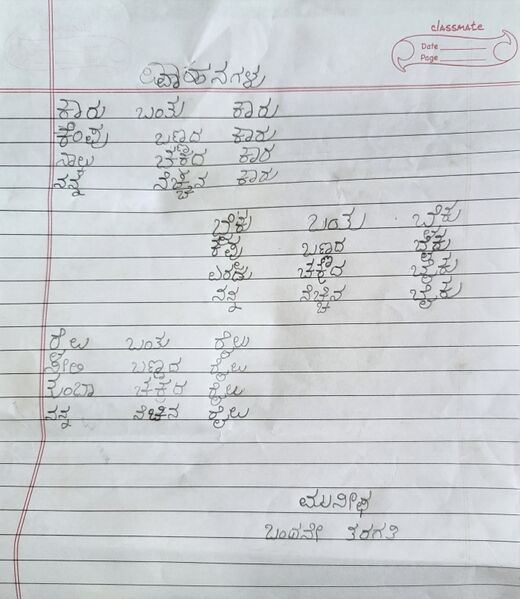 classmate
Date
Page
ವಾಹನಗಳು
ಕಾರು ಬಂತು ಕಾರು
ಕೆಂಪು ಬಣ್ಣದ ಕಾರು
ನಾಲು ಚಕ್ರದ ಕಾರ
ನನ್ನ ನೆಚ್ಚಿನ ಕಾರು
ಬೈಕು ಬಂತು ಬೈಕು
ಕಪ್ಪು ಬಣ್ಣದ ಬೈಕು
ಎರಡು ಚಕ್ರದ ಬೈಕು
ನನ್ನ ನೆಚ್ಚಿನ ಬೈಕು
ರೈಲು ಬಂತು ರೈಲು
ನೀಲಿ ಬಣ್ಣದ ರೈಲು
ತುಂಬಾ ಚಕ್ರದ ರೈಲು
ನನ್ನ ನೆಚಿನ ರೈಲು
ಒಂದನೇ ತರಗತಿ